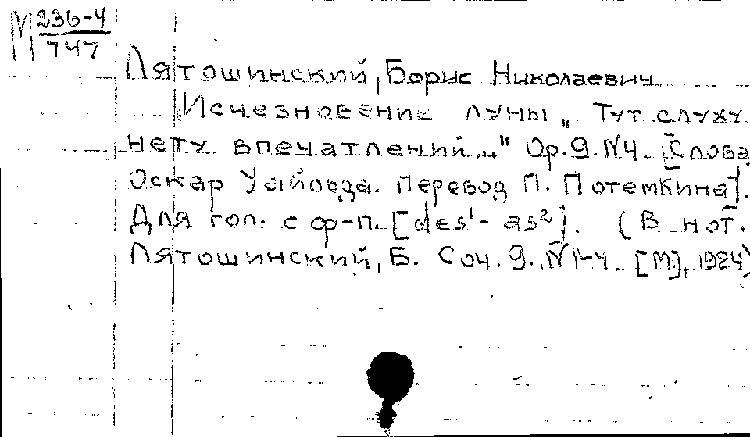 М 236-4
747
Лятошинский, Борис Николаевич
Исчезновение луны „Тут слуху
нету впечатлений..." Ор. 9. №4. [Слова
Оскар Уайльда. Перевод П. Потемкина].
Для гол. с ф-п. [des¹- as²]. (В нот.
Лятошинский, Б. Соч. 9. №1-4. [М], 1924)